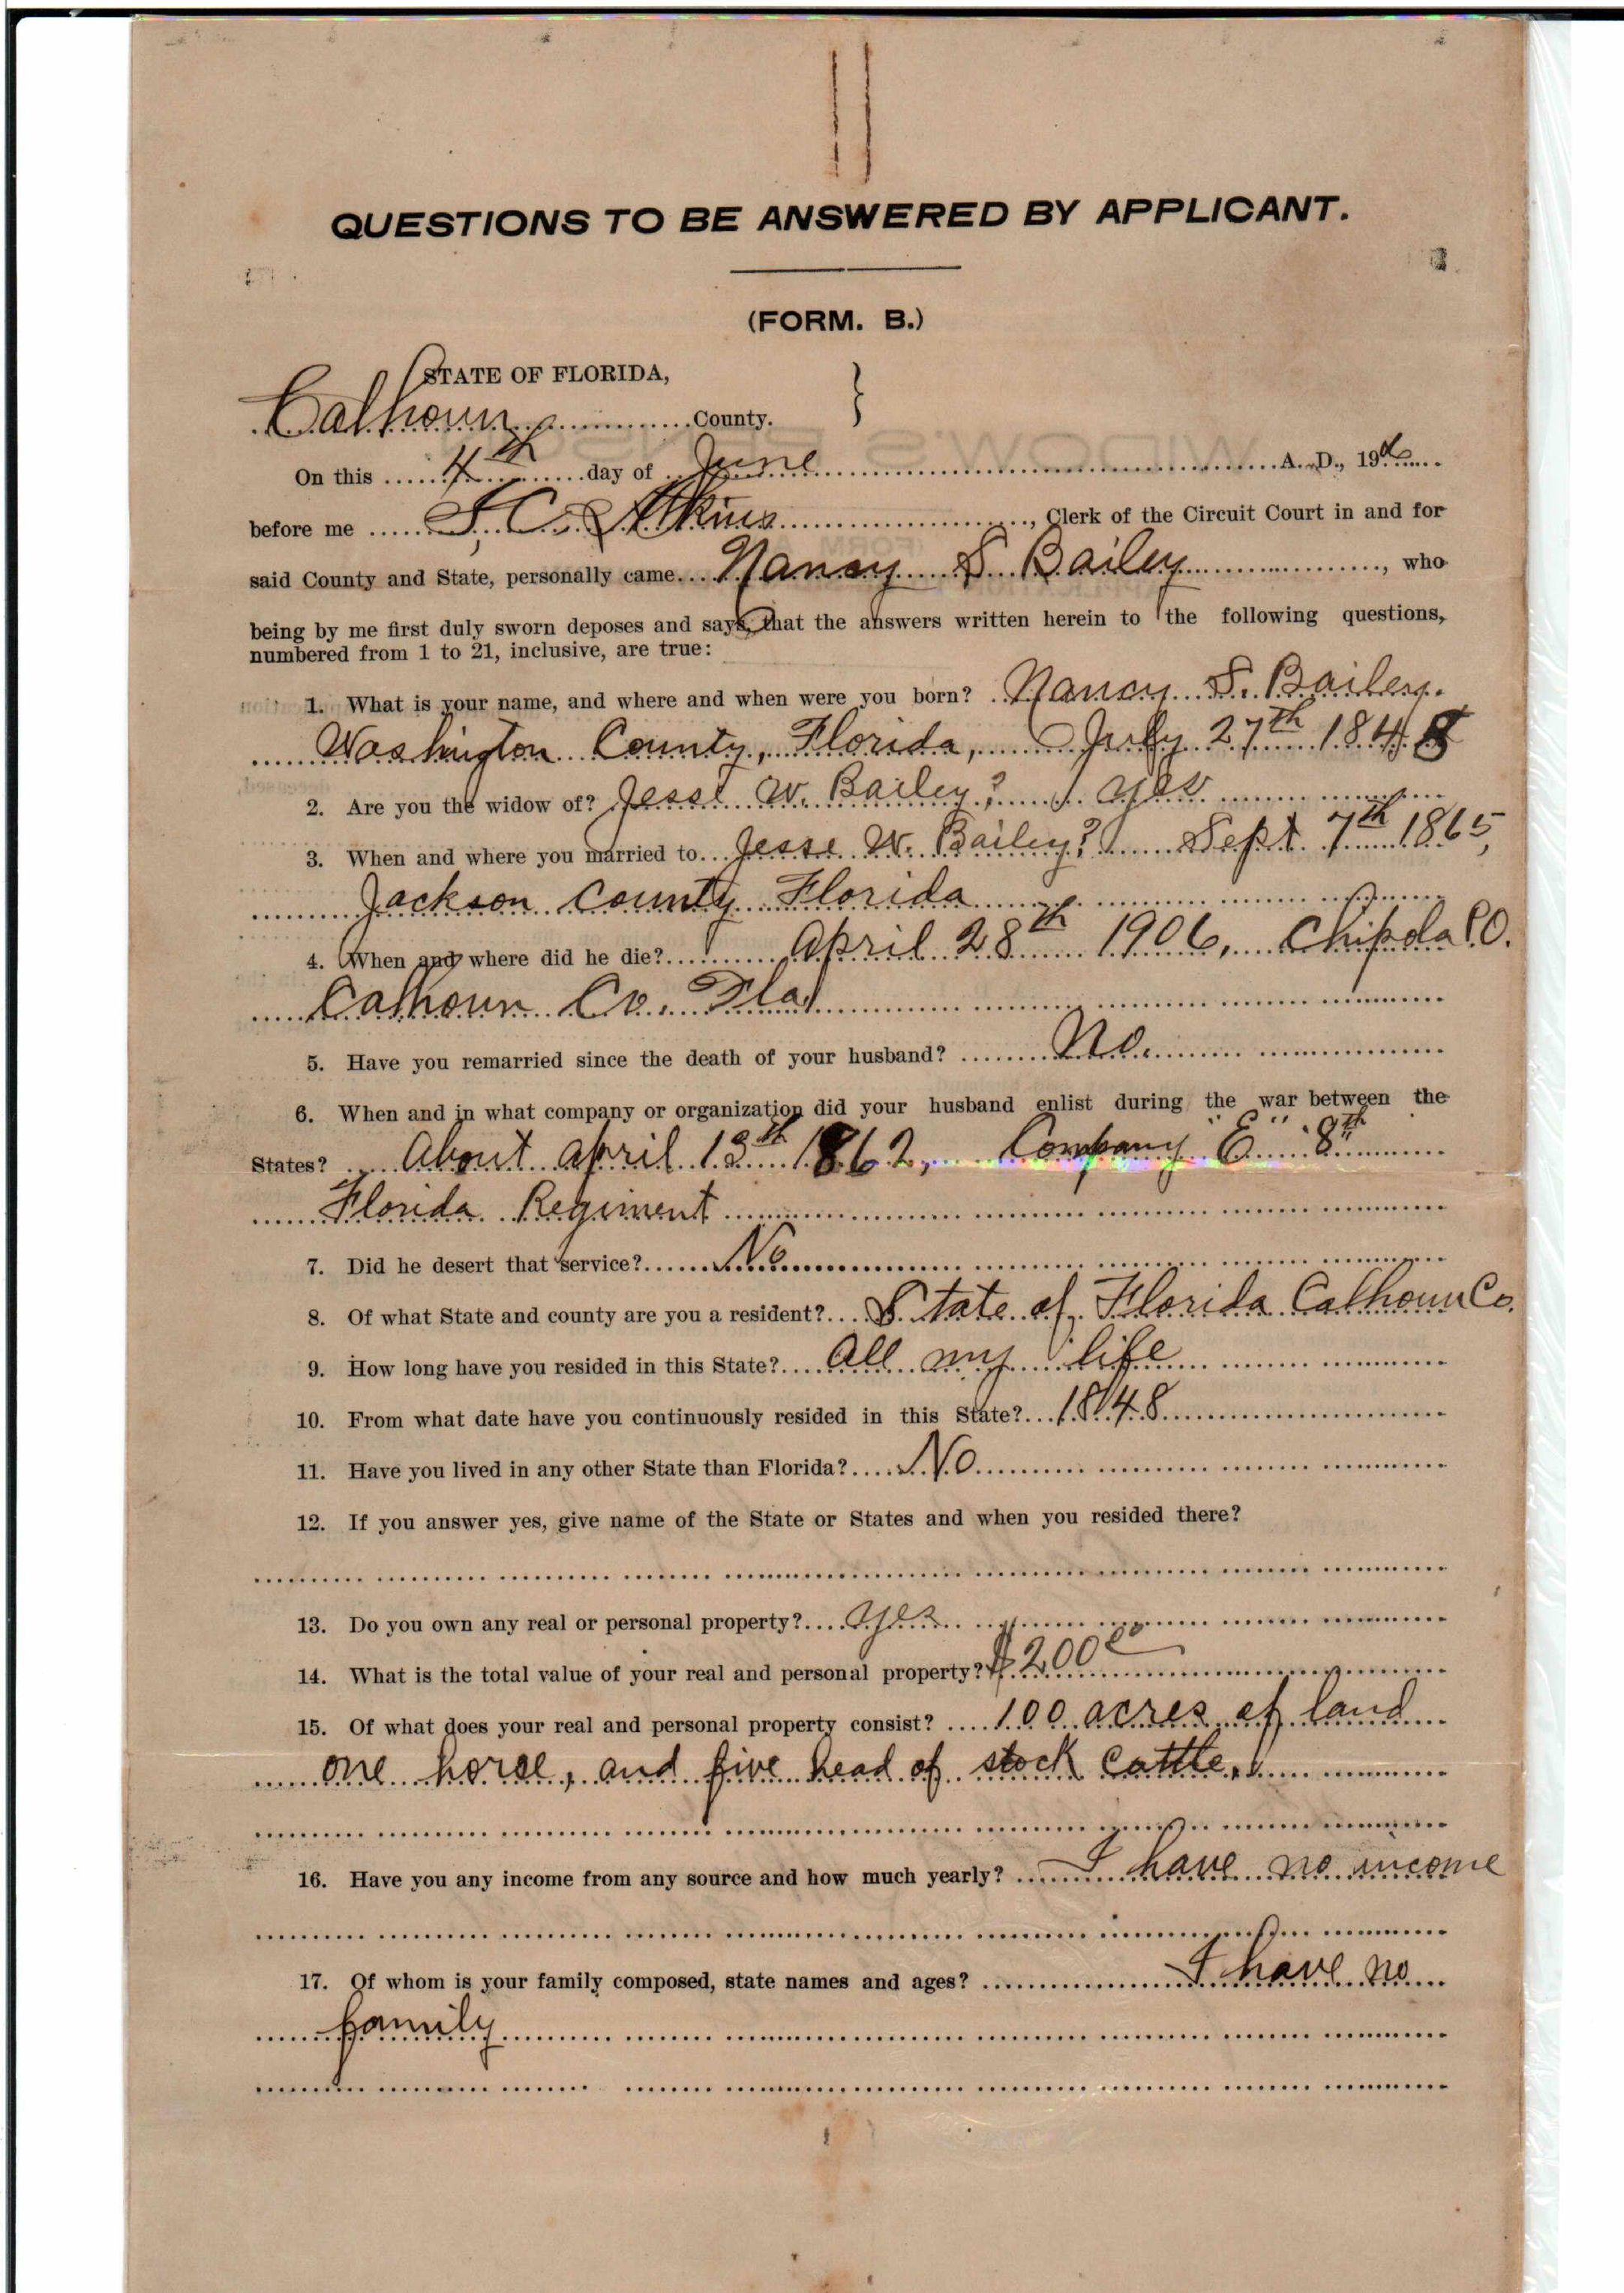 QUESTIONS TO BE ANSWERED BY APPLICANT.
(FORM. B.)
STATE OF FLORIDA,
Calhoun County.
On this 4th day of June A. D., 19
before me J. C. Atkins, Clerk of the Circuit Court in and for
said County and State, personally came Nancy S. Bailey, who
being by me first duly sworn deposes and says, that the answers written herein to the following questions,
numbered from 1 to 21, inclusive, are true:
1. What is your name, and where and when were you born? Nancy S. Bailey.
Washington County, Florida, July 27th 1848
2. Are you the widow of? Jesse W. Bailey? Yes
3. When and where you married to Jesse W. Bailey? Sept. 7th 1865,
Jackson County Florida
4. When and where did he die? April 28th 1906, Chipola P.O.
Calhoun Co. Fla
5. Have you remarried since the death of your husband? No.
6. When and in what company or organization did your husband enlist during the war between the
States? About april 13th 1862, Company "E" 8th
Florida Regiment
7. Did he desert that service? No
8. Of what State and county are you a resident? State of Florida Calhoun Co.
9. How long have you resided in this State? All my life
10. From what date have you continuously resided in this State? 1848
11. Have you lived in any other State than Florida? No
12. If you answer yes, give name of the State or States and when you resided there?
13. Do you own any real or personal property? yes
14. What is the total value of your real and personal property? $200.00
15. Of what does your real and personal property consist? 100 acres of land
one horse, and five head of stock cattle,
16. Have you any income from any source and how much yearly? I have no income
17. Of whom is your family composed, state names and ages? I have no
family